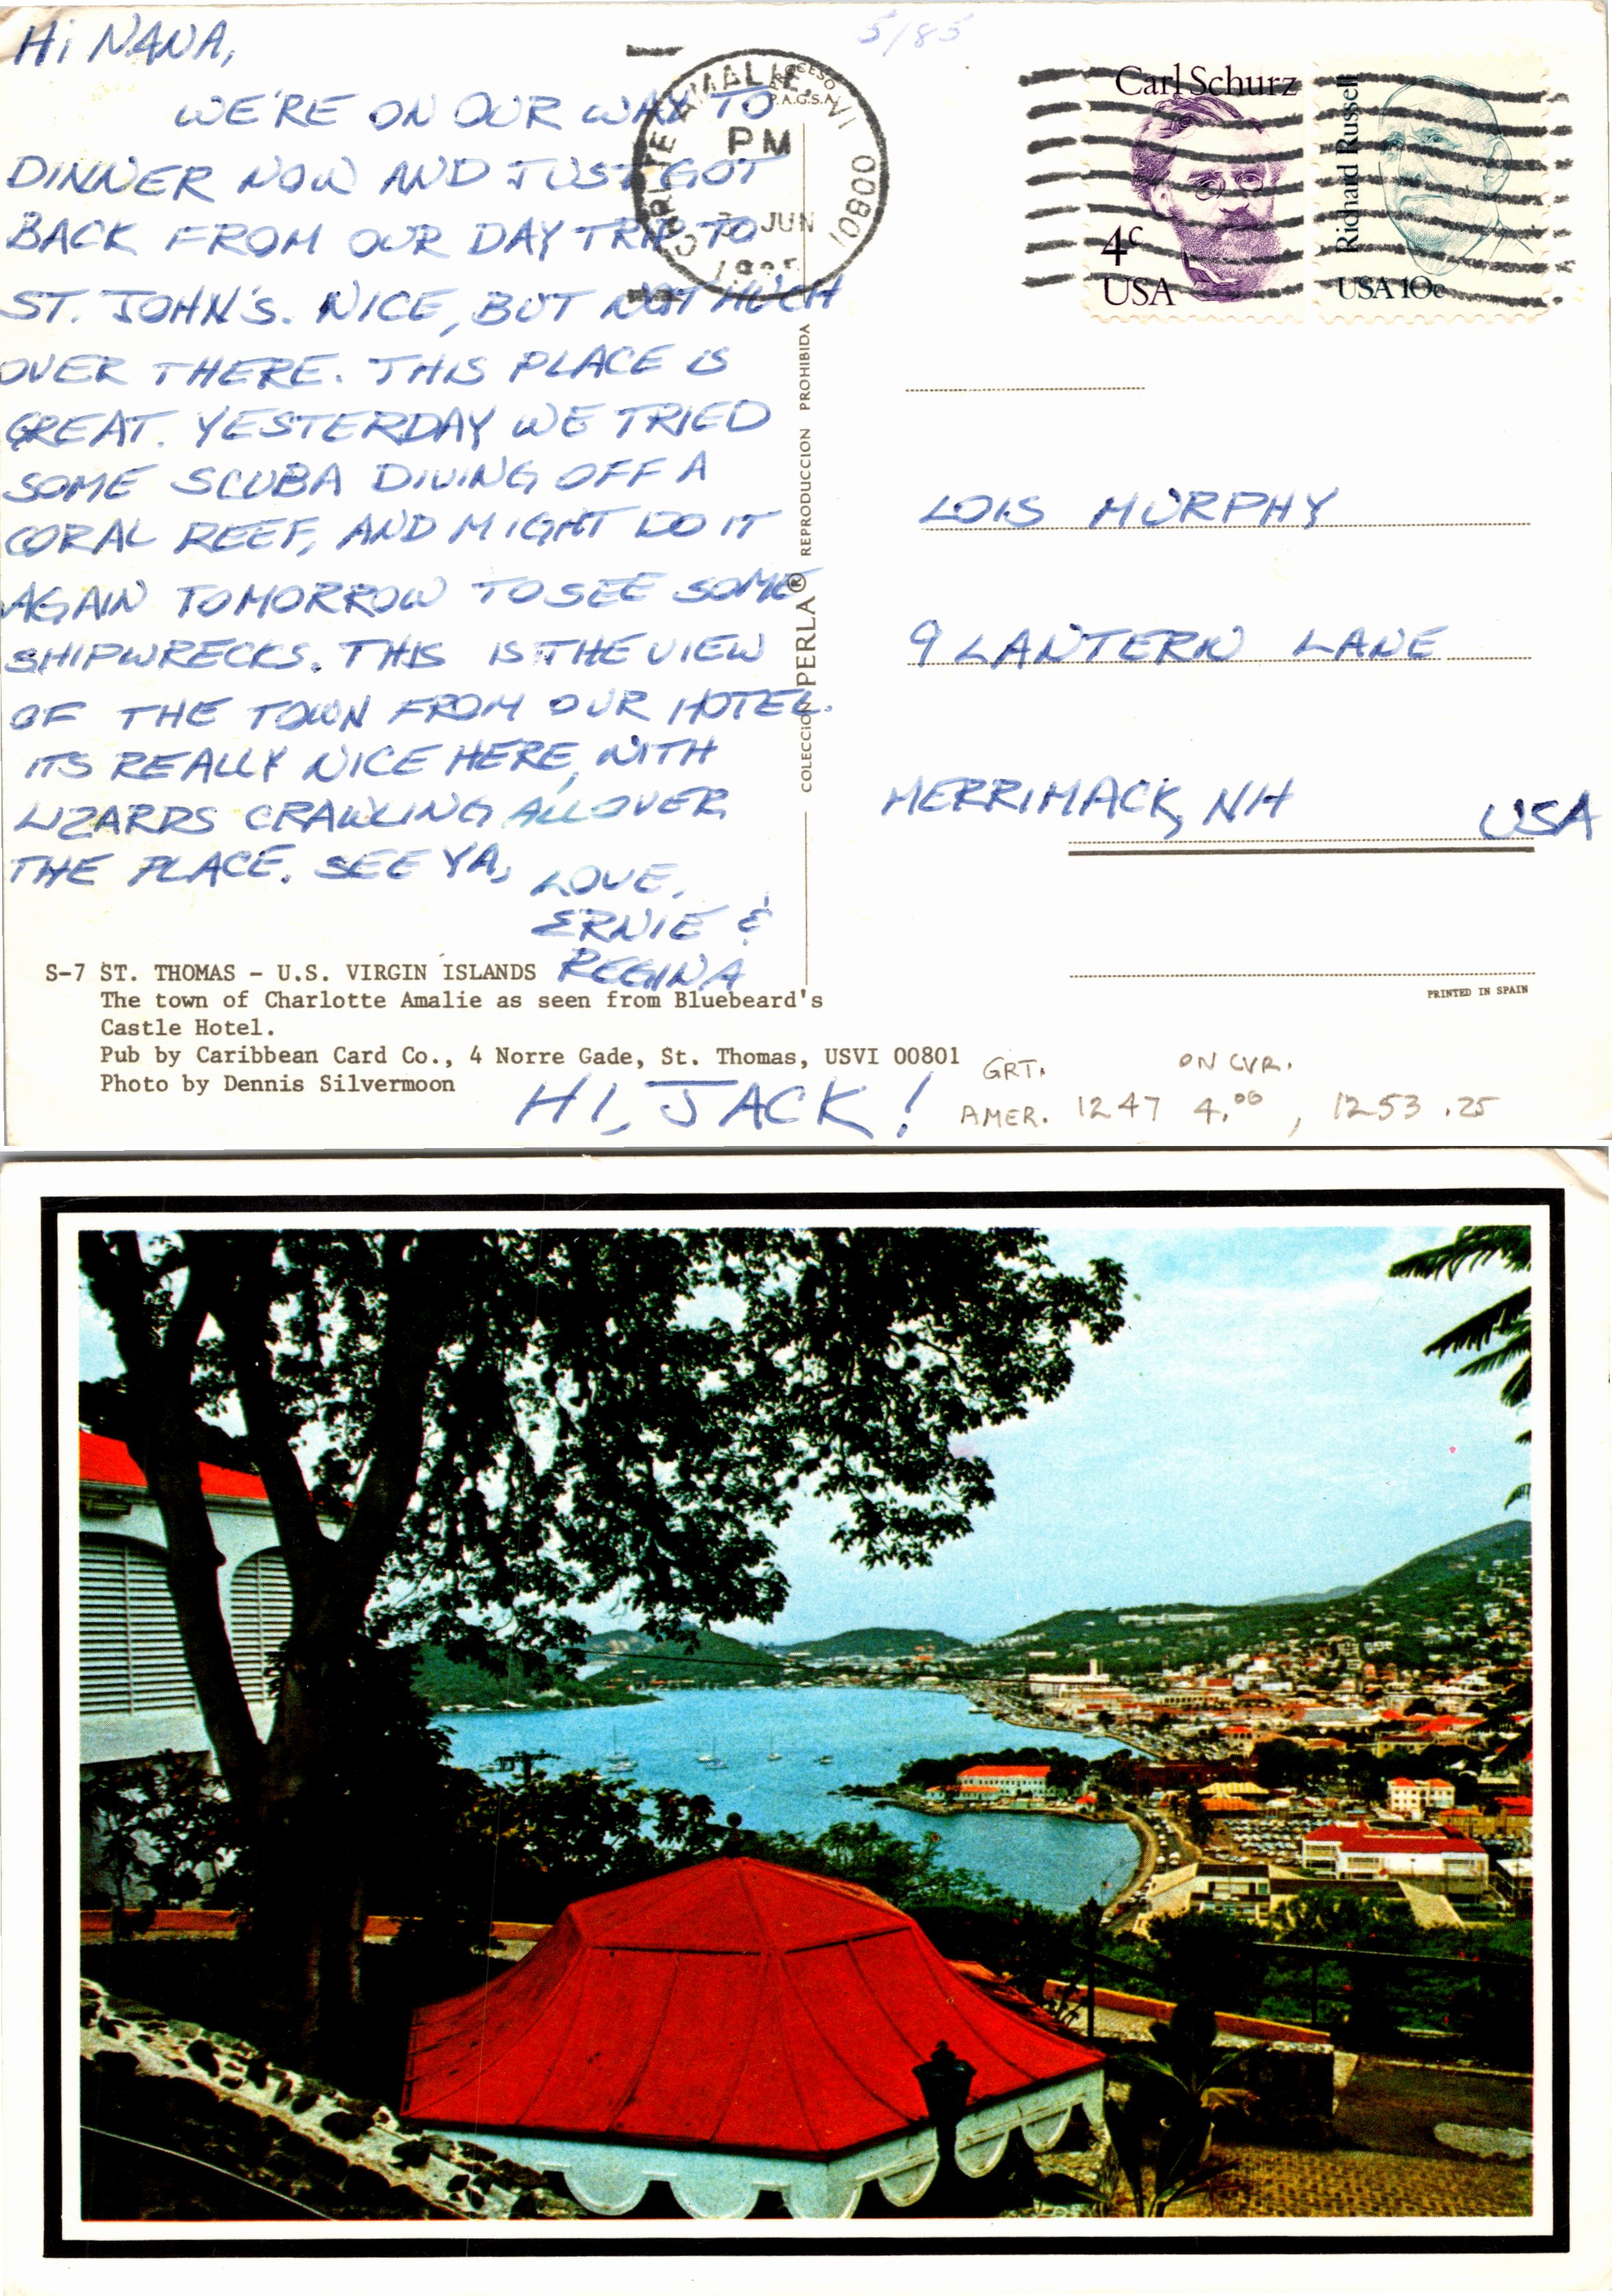 Hi NANA,
WE'RE ON OUR WAY TO
DINNER NOW AND JUST GOT
BACK FROM OUR DAY TRIP TO
ST. JOHN'S. NICE, BUT NOT MUCH
OVER THERE. THIS PLACE IS
GREAT. YESTERDAY WE TRIED
SOME SCUBA DIVING OFF A
CORAL REEF, AND MIGHT DO IT
AGAIN TOMORROW TO SEE SOME
SHIPWRECKS. THIS IS THE VIEW
OF THE TOWN FROM OUR HOTEL.
ITS REALLY NICE HERE, WITH
LIZARDS CRAWLING ALL OVER
THE PLACE. SEE YA,
LOVE,
ERNIE &
REGINA
S-7 ST. THOMAS - U.S. VIRGIN ISLANDS
The town of Charlotte Amalie as seen from Bluebeard's
Castle Hotel.
Pub by Caribbean Card Co., 4 Norre Gade, St. Thomas, USVI 00801
Photo by Dennis Silvermoon
HI, JACK!
5/85
AMALIE, VI 00801
PM
JUN
PROCESO
P.A.G.S.A.
COLECCION PERLA® REPRODUCCION PROHIBIDA
Carl Schurz
4c
USA
Richard Russell
USA 10c
LOIS MURPHY
9 LANTERN LANE
MERRIMACK, NH USA
PRINTED IN SPAIN
GRT. ON CVR.
AMER. 1247 4.00, 1253 .25